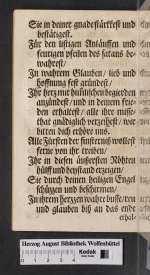 Sie in deiner gnade stärkest und
bestätigest.
Für den listigen Anläuffen und
feurigen pfeilen des satans be-
wahrest/
In wahrem Glauben/ lieb und
hoffnung fest gründest/
Ihr hertz mit hülflichen begierden
anzündest/ und in deinem frie-
den erhaltest/ alle ihre misse-
that gnädiglich verzeihest/ wir
bitten dich erhöre uns.
Alle Fürsten der finsternüß wollest
ferne von ihr treiben/
Ihr in diesen äussersten Nöhten
hülff und beystand erzeigen/
Sie durch deinen heiligen Engel
schützen und beschirmen/
In ihrem hertzen wahre busse/ reu
und glauben biß an das ende
erhal-
Herzog August Bibliothek Wolfenbüttel